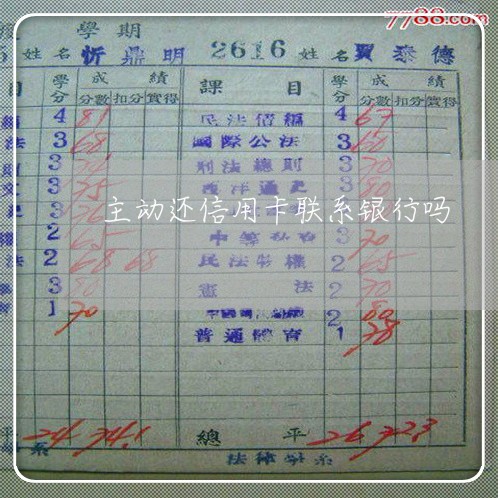 7788.com
度 學期
姓名 忻鼎明 2616 姓名 賈泰德
目 學分 成績 分數 扣分 實得 課目 學分 成績 分數 扣分 實得
4 81 民法債編 4 67
法 3 68 國際公法 3 60
3 刑法總則 3 70
3 75 西洋通史 3 80
主动还信用卡联系银行吗
2 65 3 70
法 2 68 68 民法物權 2 65
3 80 憲法 2 70
1 70 2 80
普通體育 1 78
平 24 74.1 總平 26 72.3
系 法律學系